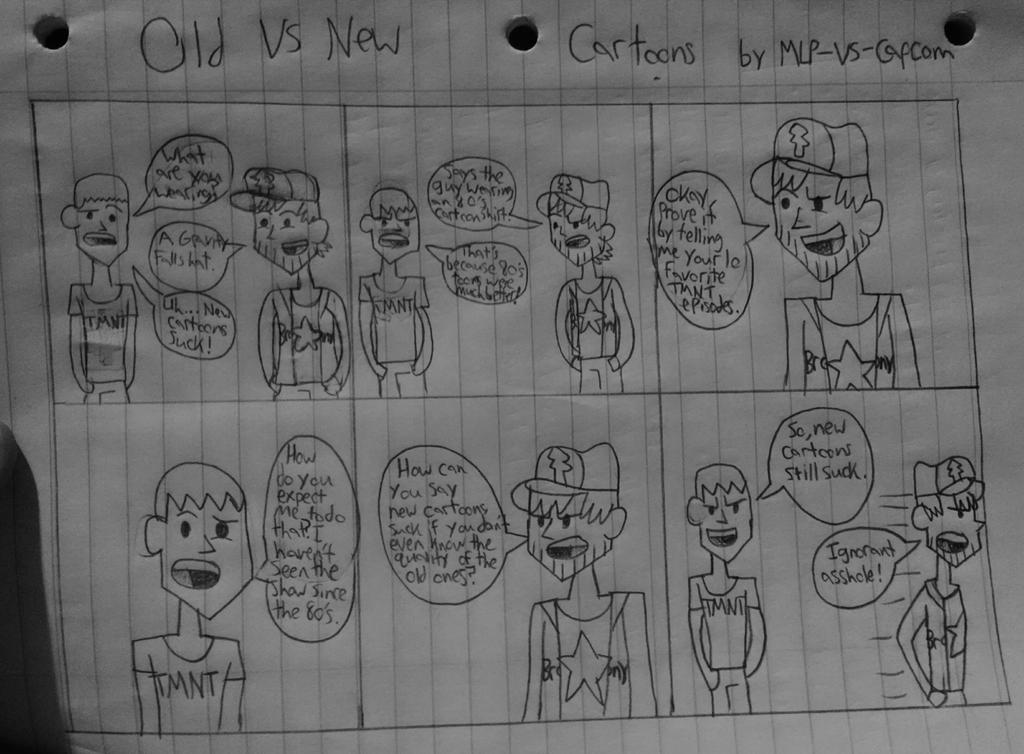 Old vs New Cartoons by MLP-VS-Capcom
What
are you
wearing?
A Gravity
Falls hat.
Uh... New
cartoons
suck!
TMNT
Bro ny
Says the
guy wearing
an 80's
cartoon shirt.
That's
because 80's
toons were
much better!
TMNT
Bro ny
Okay
Prove it
by telling
me your 10
Favorite
TMNT
episodes.
Bro ny
How
do you
expect
me to do
that? I
haven't
seen the
show since
the 80's.
TMNT
How can
you say
new cartoons
suck if you don't
even know the
quality of the
old ones?
Bro ny
So, new
cartoons
still suck.
Ignorant
asshole!
TMNT
Bro